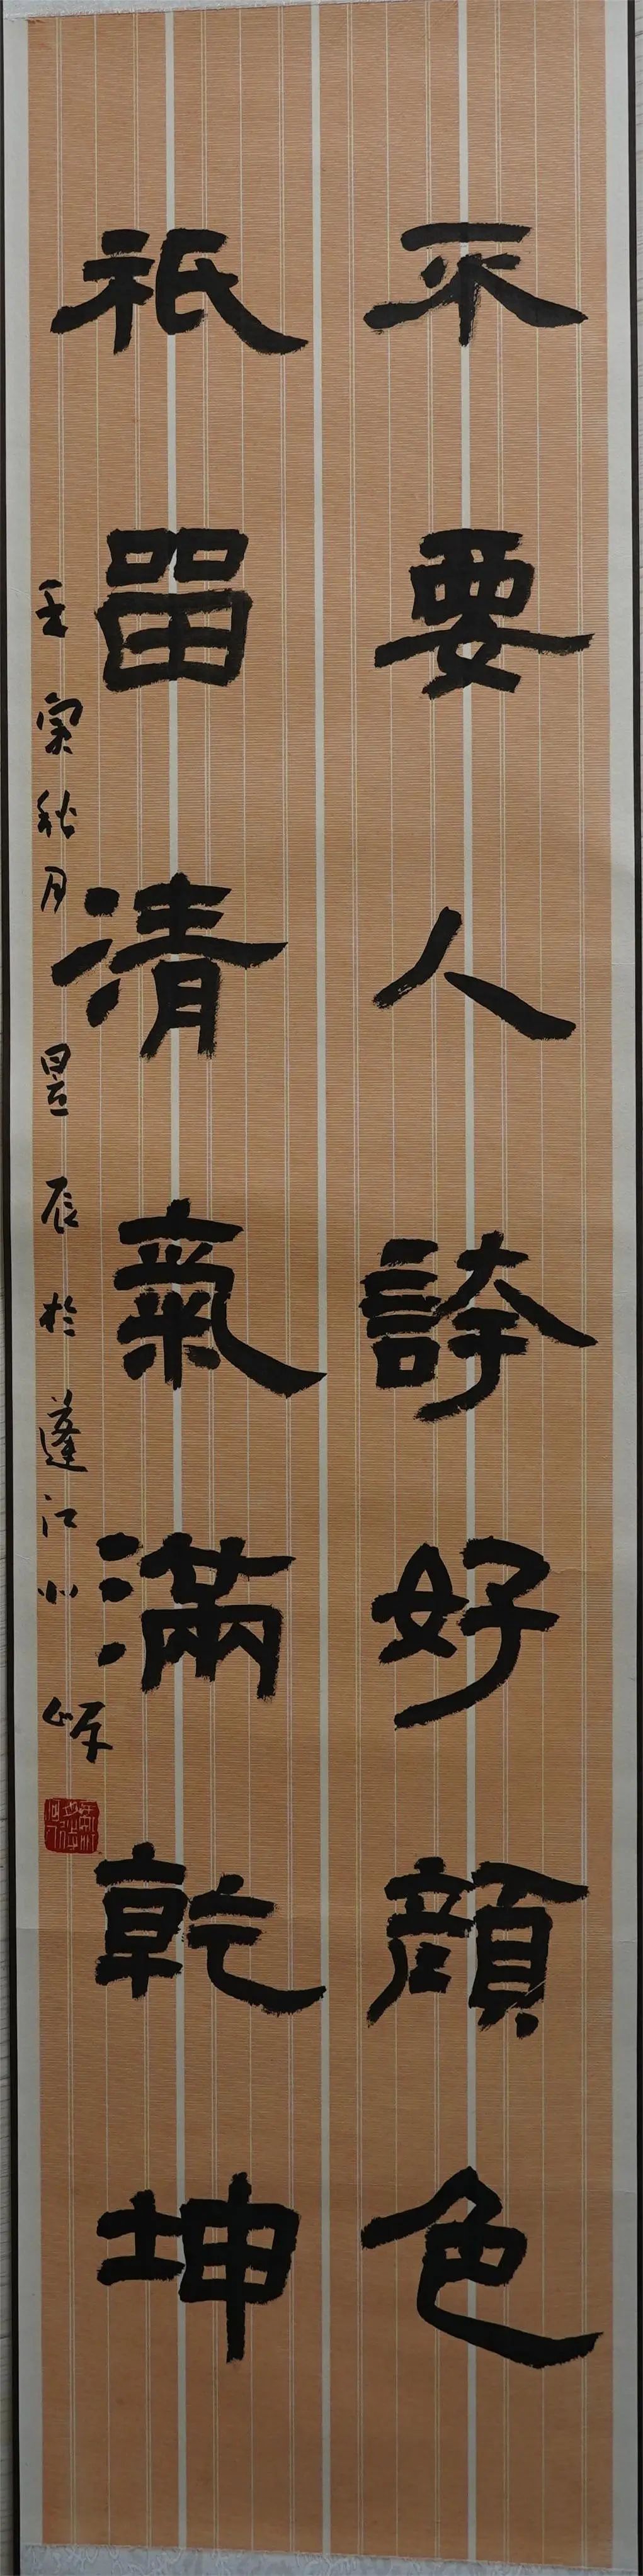 不要人誇好顔色
祇留清氣滿乾坤
壬寅秋月 昱辰於蓬江北岸